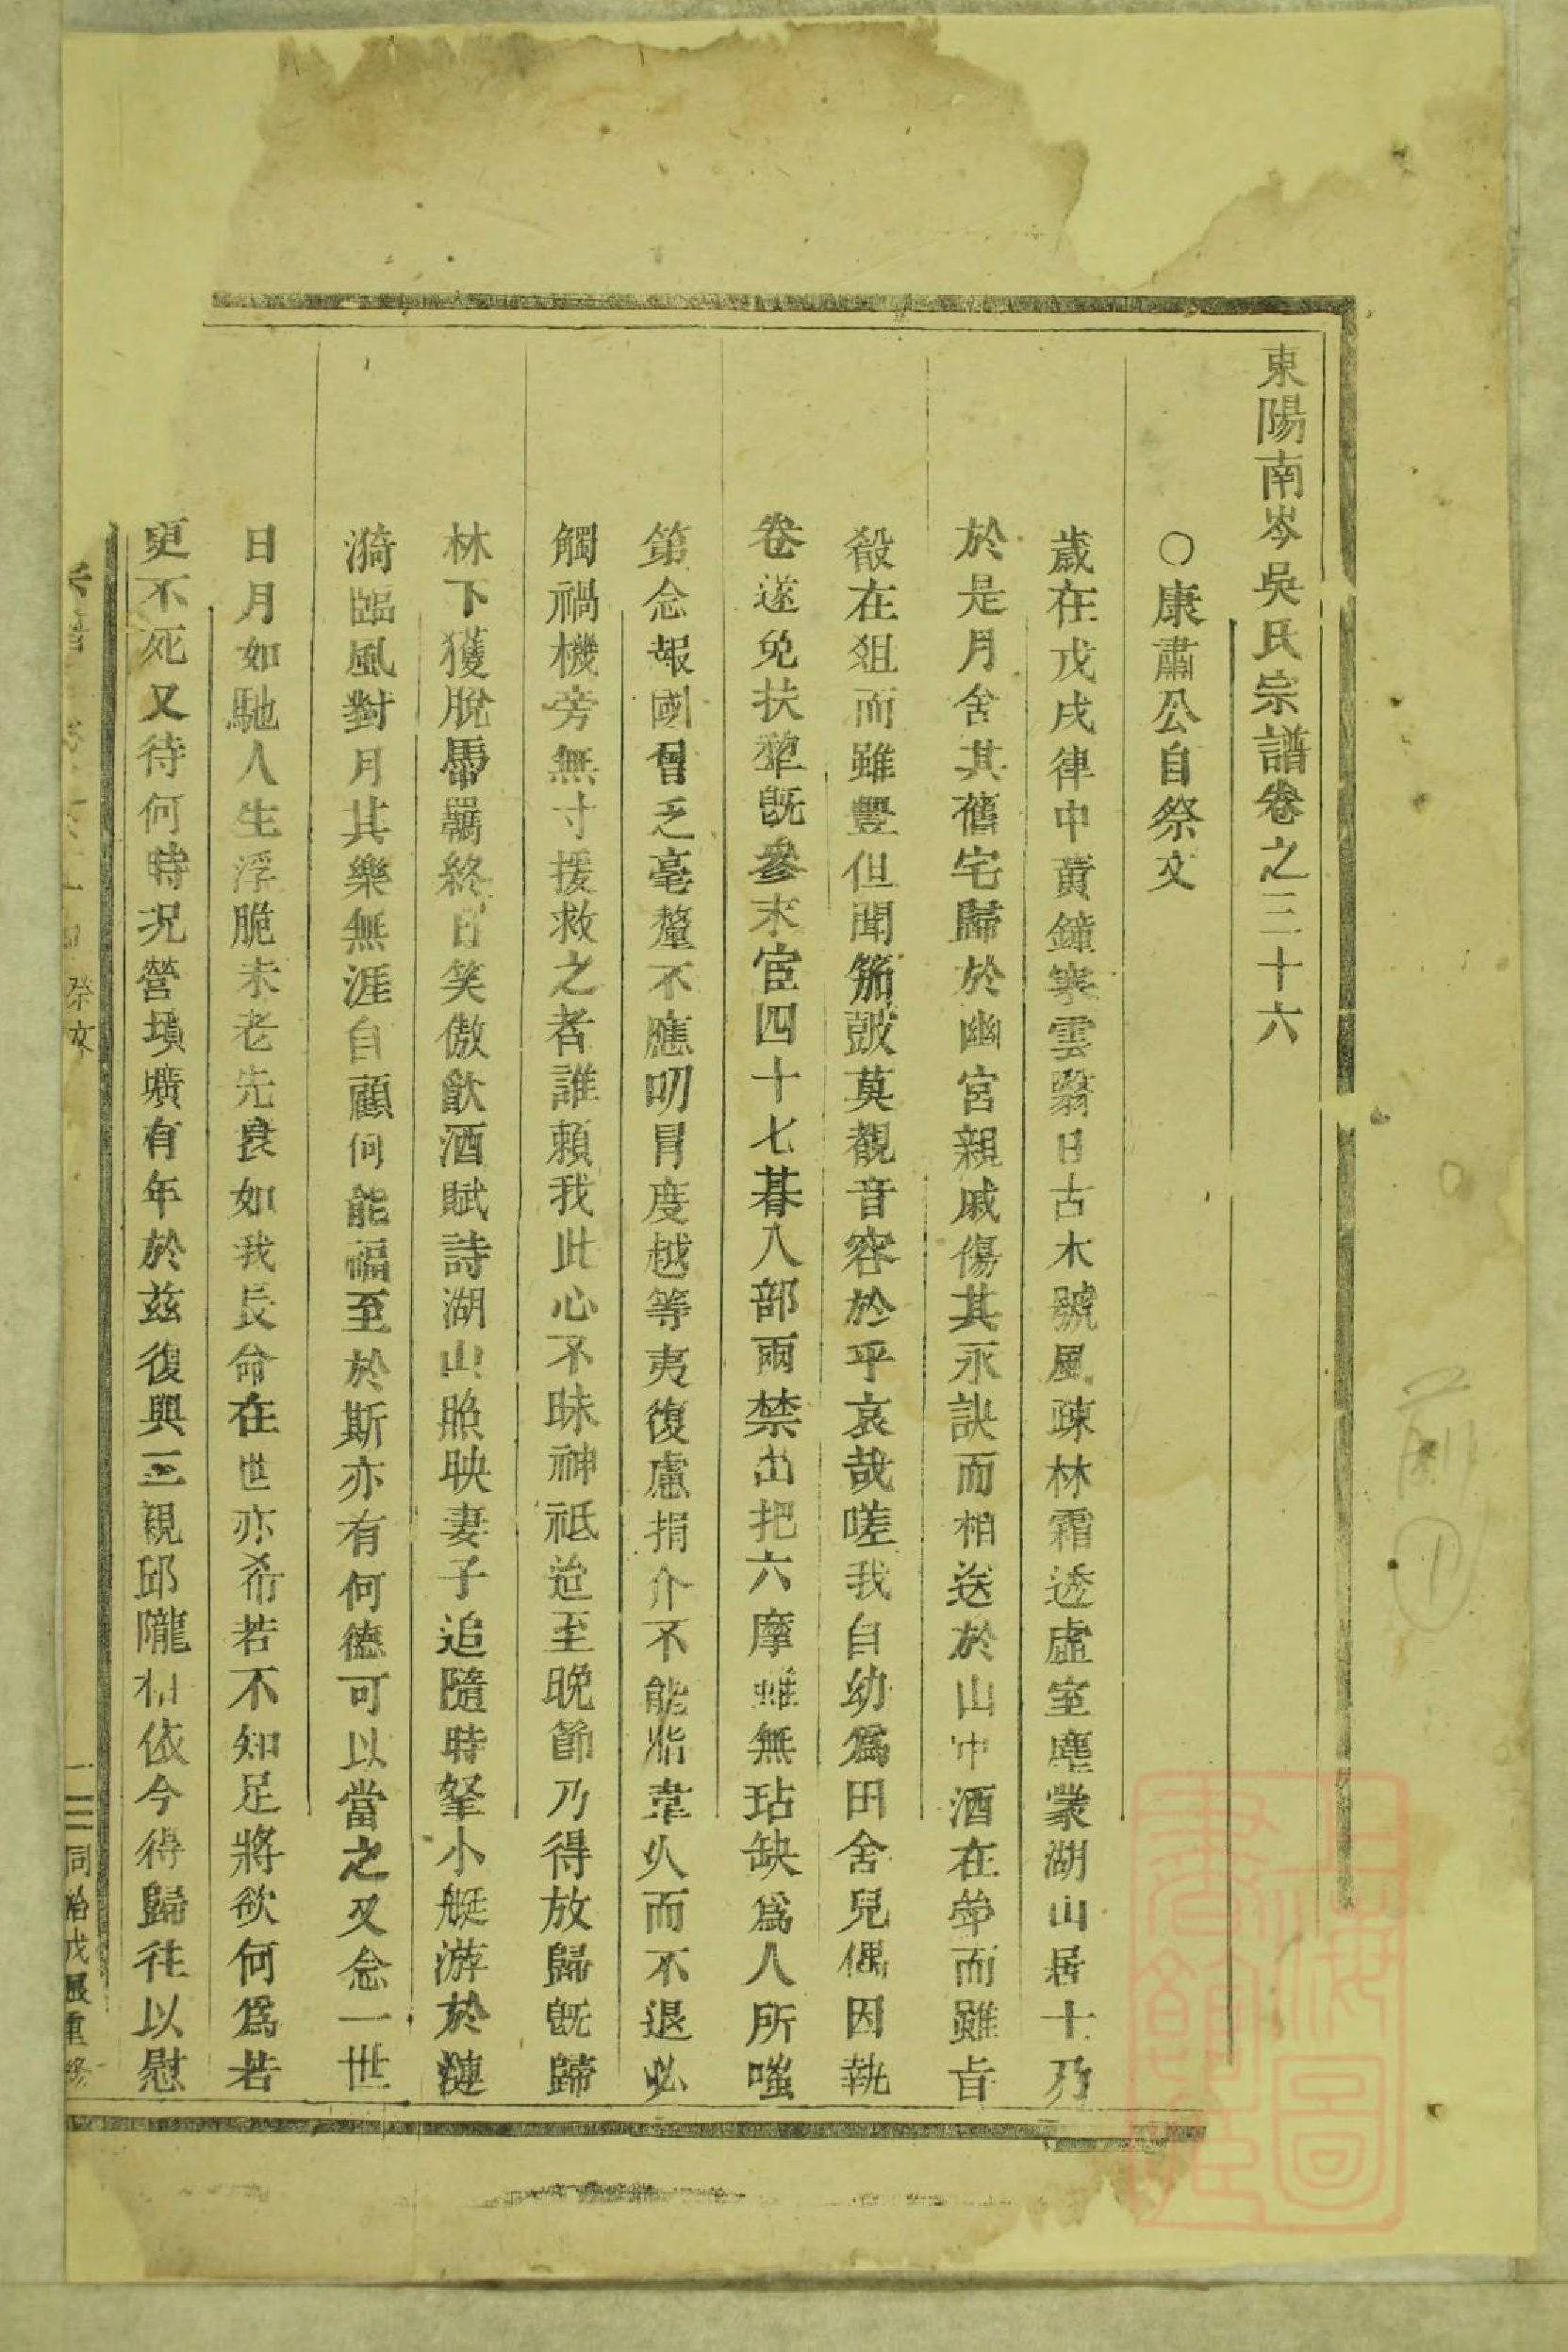 東陽南岑吳氏宗譜卷之三十六
○康肅公自祭文
歲在戊戌律中黃鐘寒雲翳日古木號風疎林霜透虛室塵蒙湖山居士乃
於是月舍其舊宅歸於幽宮親戚傷其永訣而相送於山中酒在斝而雖旨
殽在俎而雖豐但聞笳鼓莫覩音容於乎哀哉嗟我自幼爲田舍兒偶因執
卷遂免扶犂旣參末宦四十七朞入部兩禁出把六麾雖無玷缺爲人所嗤
第念報國曾乏毫釐不應叨冒度越等夷復慮捐介不能脂韋久而不退必
觸禍機旁無寸援救之者誰賴我此心不昧神祇迨至晚節乃得放歸旣歸
林下獲脫馬羈終日笑傲飮酒賦詩湖山照映妻子追隨時拏小艇游於漣
漪臨風對月其樂無涯自顧何能福至於斯亦有何德可以當之又念一世
日月如馳人生浮脆未老先衰如我長命在世亦希若不知足將欲何爲若
更不死又待何時况營墳壙有年於兹復與三親邱隴相依今得歸往以慰
祭文
同治戊辰重修
上海圖書館藏
前①